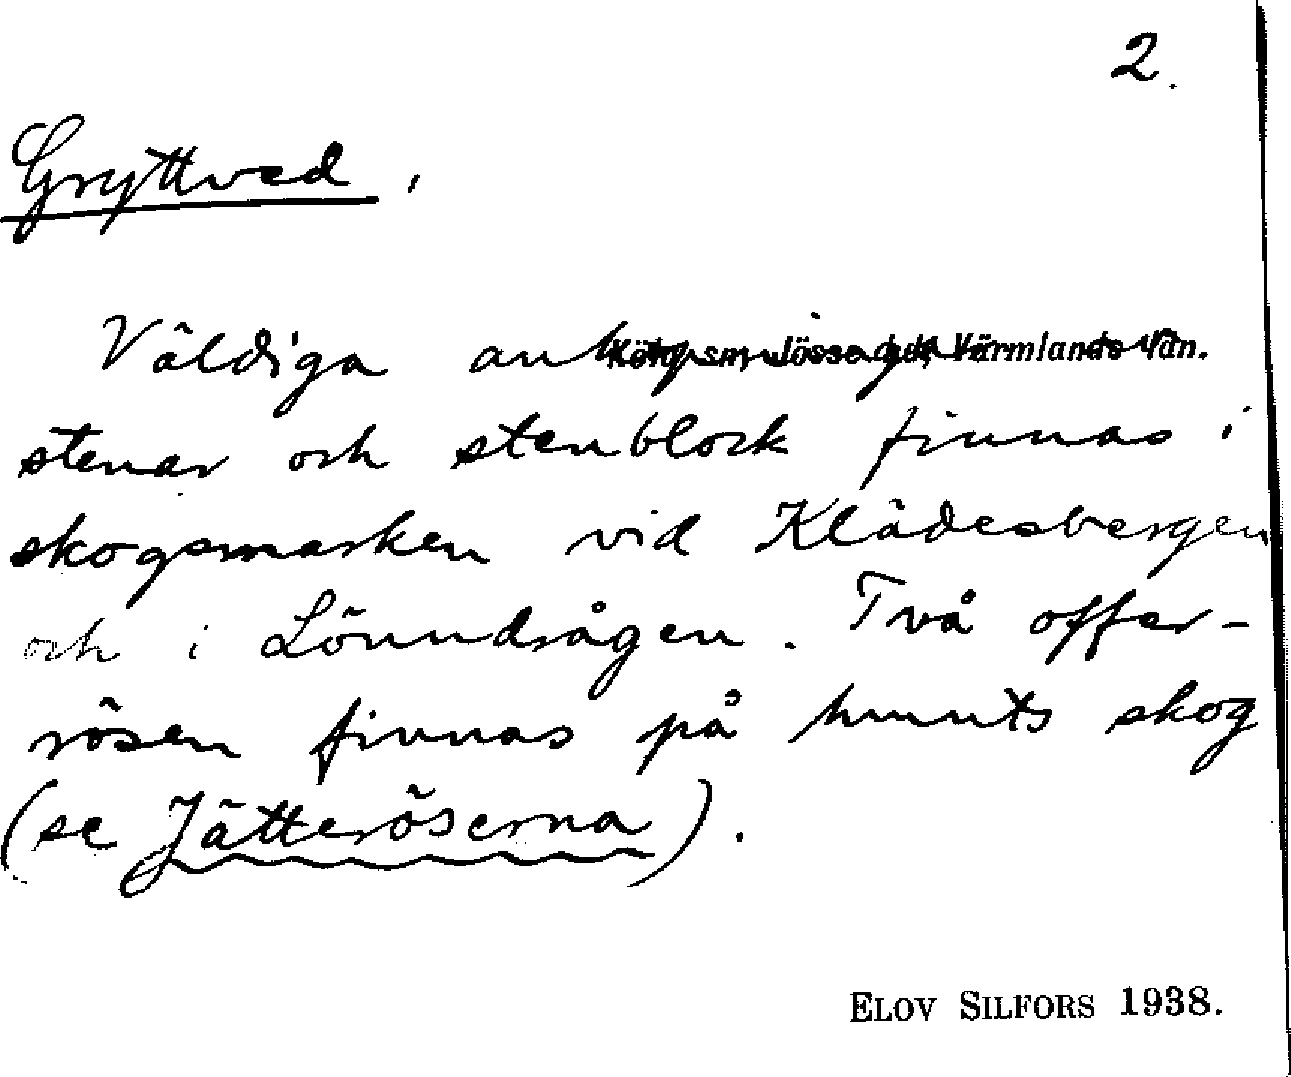 2.
Gryttved,
Väldiga
Jösse hd, Värmlands län.
stenar och stenblock finnas i
skogsmarken vid Klädesbergen
och i Lönndrågen. Två offer-
rösen finnas på hmnts skog
(se Jätteröserna).
ELOV SILFORS 1938.